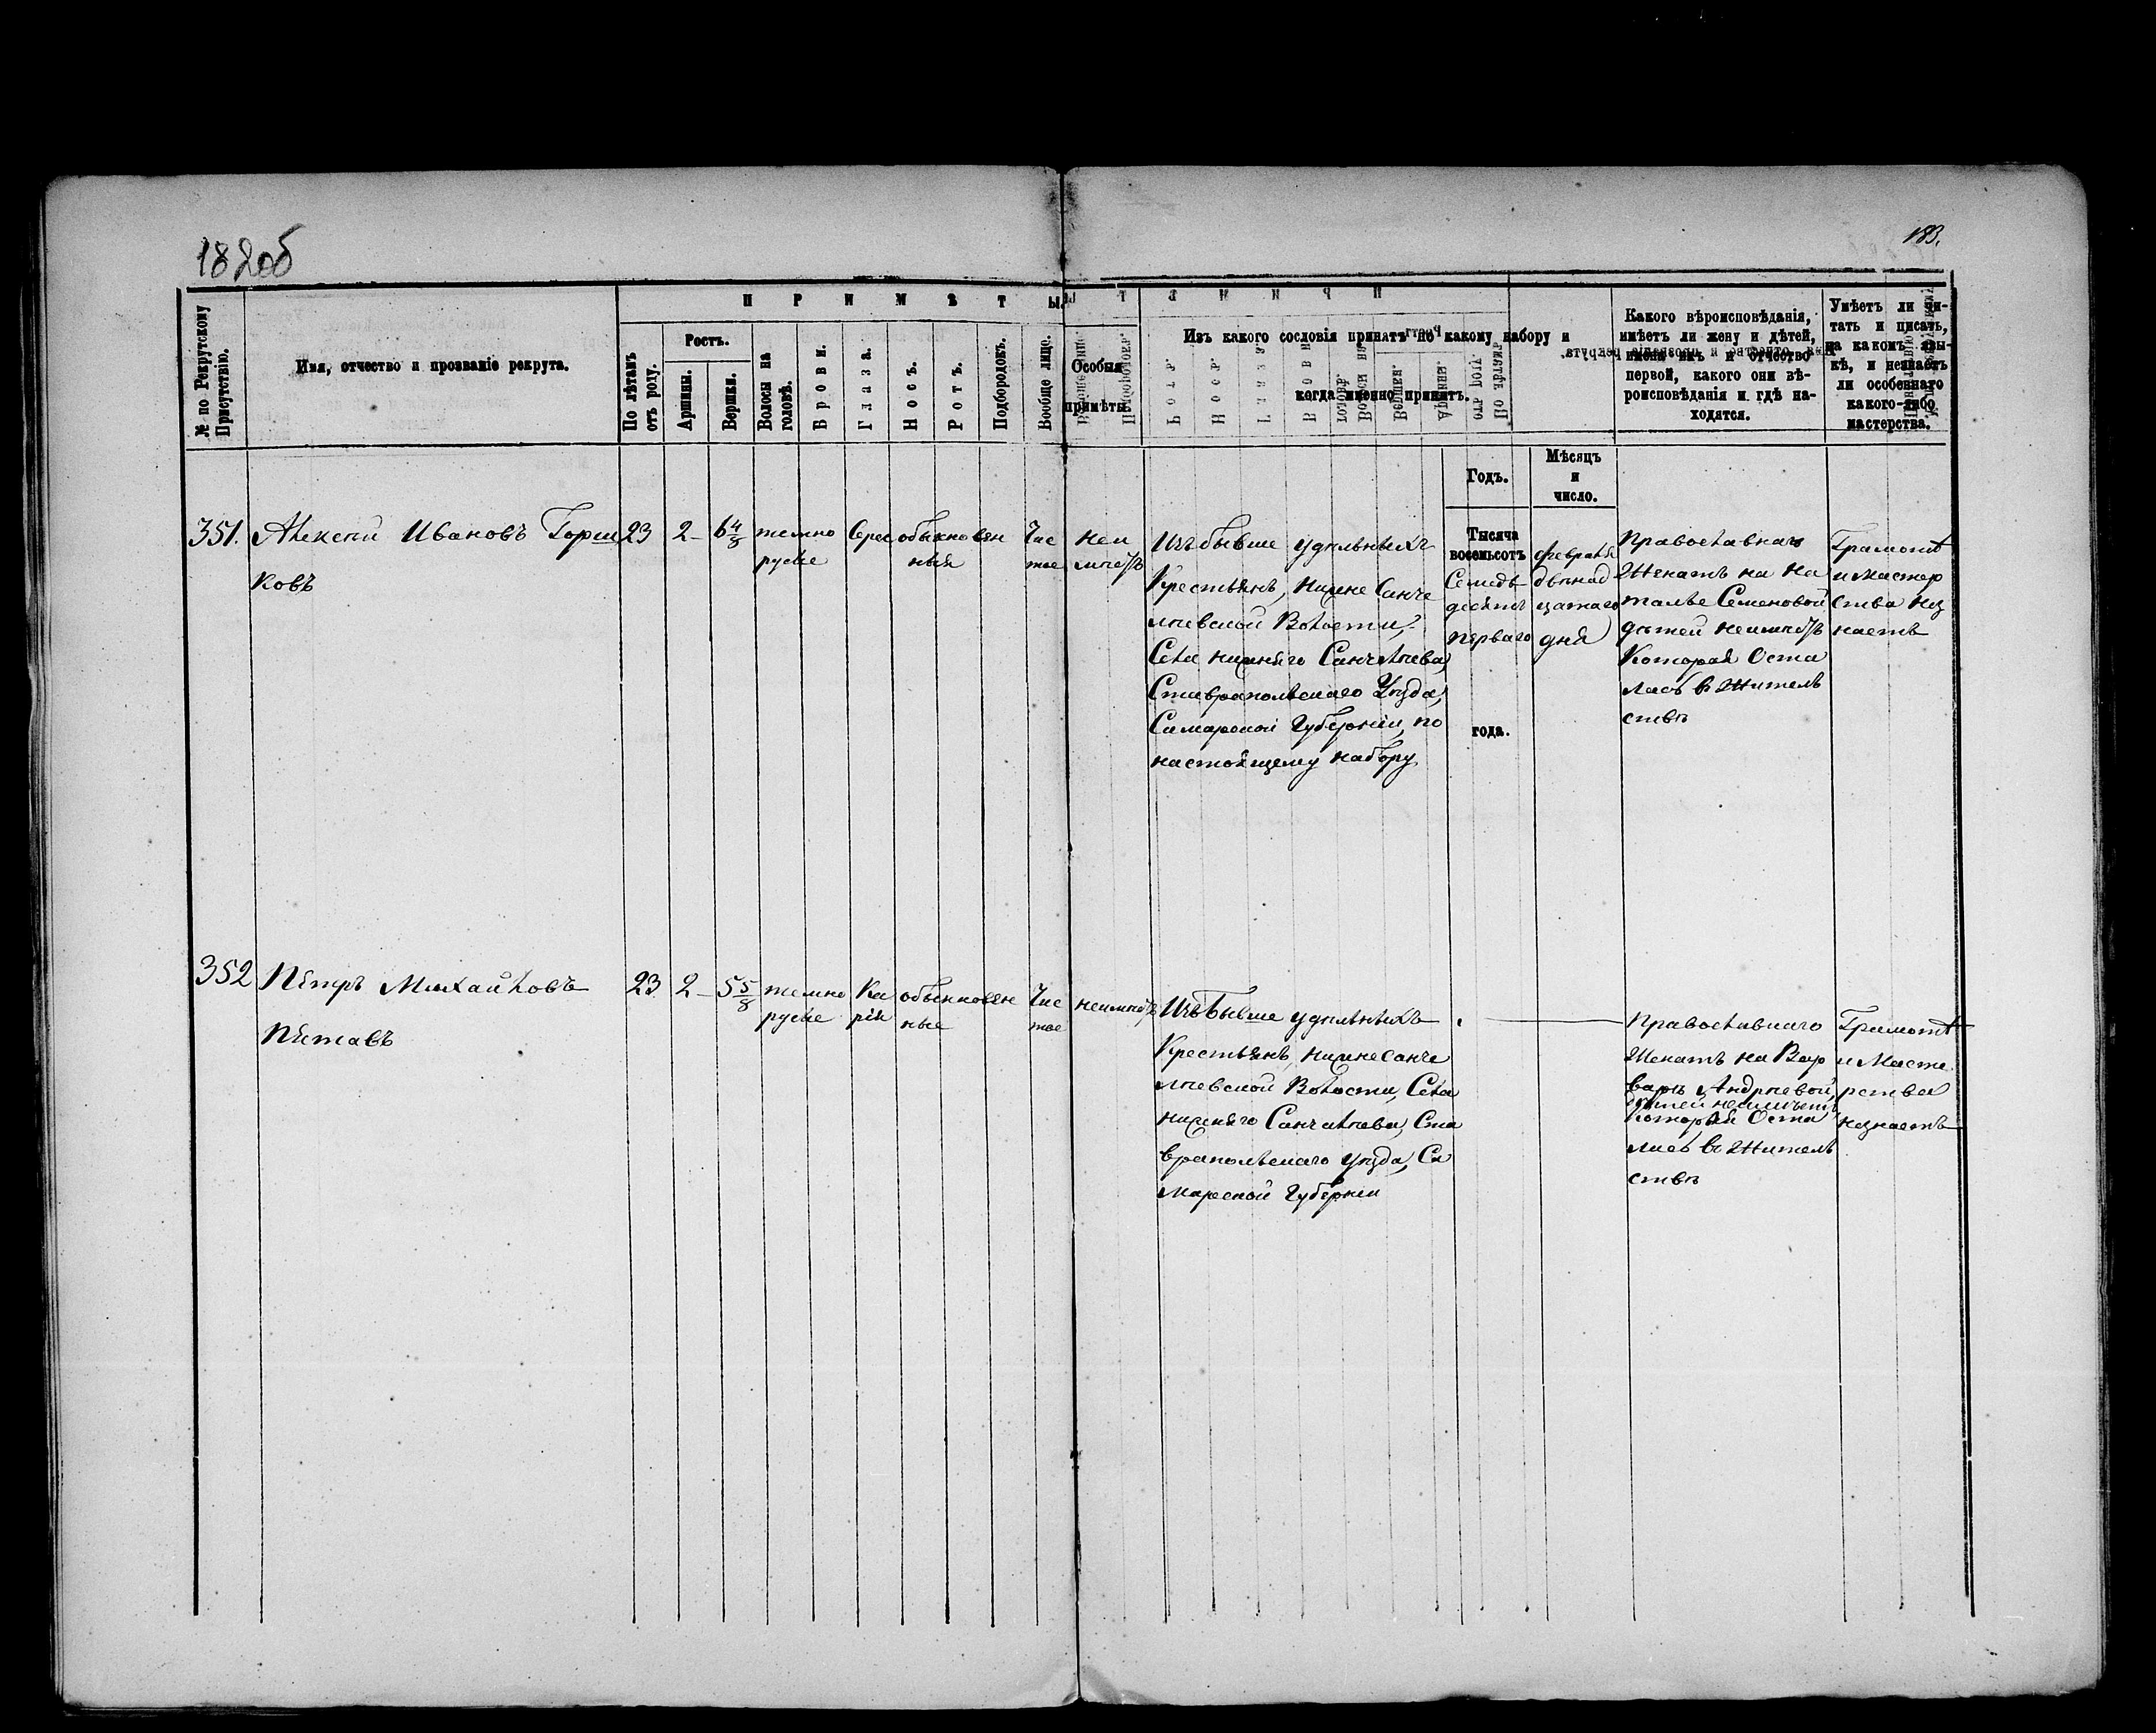 182об
183.
№ по Рекрутскому Присутствію.
Имя, отчество и прозваніе рекрута.
П Р И М Ѣ Т Ы.
По лѣтамъ отъ роду.
Ростъ.
Аршины.
Вершки.
Волосы на головѣ.
Брови.
Глаза.
Носъ.
Ротъ.
Подбородокъ.
Вообще лице.
Особыя примѣты.
Изъ какого сословія принятъ по какому набору и
когда именно принятъ.
Годъ.
Мѣсяцъ
и
число.
Какого вѣроисповѣданія,
имѣетъ ли жену и дѣтей,
имена ихъ и отчество
первой, какого они вѣ-
роисповѣданія и гдѣ на-
ходятся.
Умѣетъ ли чи-
тать и писать,
на какомъ язы-
кѣ, и незнаетъ
ли особеннаго
какого-либо
мастерства.
351.
Алексѣй Ивановъ Горш
ковъ
23
2
6 4/8
темно
русые
Серые
обыкновен
ныя
Чис
тое
Неи
мѣетъ
Изъ бывше удѣльныхъ
Крестьянъ, Нижне Санче
лѣевской Волости,
Села Нижняго Санчелѣева,
Ставропольскаго Уѣзда,
Самарской Губерніи, по
настоящему набору
Тысяча
восемьсотъ
Семдь
десятъ
перваго
года.
февраля
двѣнад
цатаго
дня
Православнаго
Женатъ на На
талье Семеновой
дѣтей неимѣетъ
Которая Оста
лась в Житель
ствѣ
Грамотѣ
и Мастер
ства нез
наетъ
352
Пётръ Михайловъ
Пётавъ
23
2
5 5/8
темно
русые
Ка
рія
обыкновен
ные
Чис
тое
неимѣетъ
Изъ Бывше удѣльныхъ
Крестьянъ, Нижнесанче
лѣевской Волости, Села
Нижняго Санчелѣева, Ста
врапольскаго уѣзда, Са
марской Губерніи
Православнаго
Женатъ на Вар
варѣ Андрѣевой,
дѣтей неимѣетъ
Которыя Оста
лись в Житель
ствѣ
Грамотѣ
и Масте
рства
незнаетъ